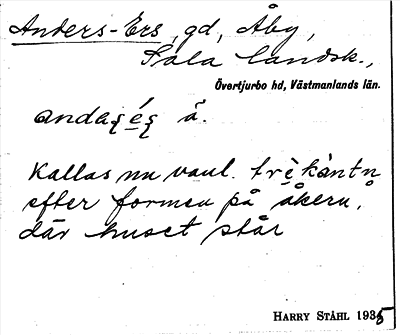 Anders-Ers, gd, Åby,
Sala landsk.,
Övertjurbo hd, Västmanlands län.
å.
Kallas nu vanl. trèkàntn̥
efter formen på åkern,
där huset står
HARRY STÅHL 1935